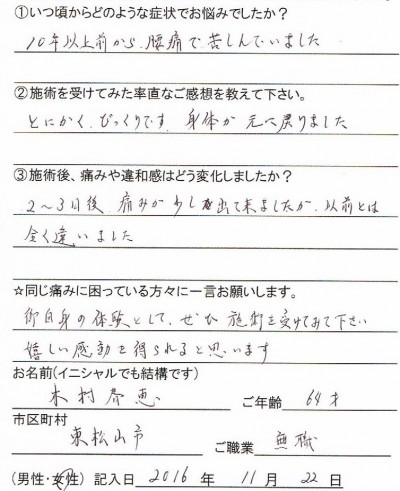 ①いつ頃からどのような症状でお悩みでしたか？
10年以上前から、腰痛で苦しんでいました
②施術を受けてみた率直なご感想を教えて下さい。
とにかく、びっくりです、身体が元へ戻りました
③施術後、痛みや違和感はどう変化しましたか？
2～3日後、痛みが少し出て来ましたが、以前とは
全く違いました
☆同じ痛みに困っている方々に一言お願いします。
御自身の体験として、ぜひ施術を受けてみて下さい
嬉しい感動を得られると思います
お名前(イニシャルでも結構です)
木村春恵 ご年齢 64才
市区町村
東松山市 ご職業 無職
(男性・女性) 記入日 2016 年 11 月 22 日